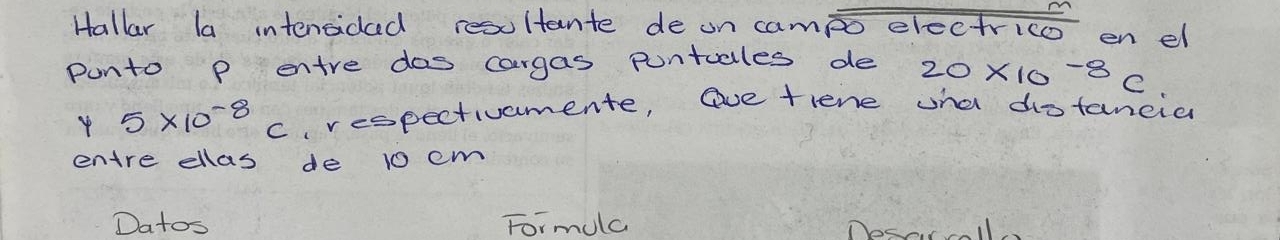 m
Hallar la intensidad resultante de un campo electrico en el
punto p entre das cargas puntuales de 20 x 10 ⁻⁸ C
y 5 x 10⁻⁸ C, respectivamente, Que tiene una distancia
entre ellas de 10 cm
Datos Fórmula Desarrollo